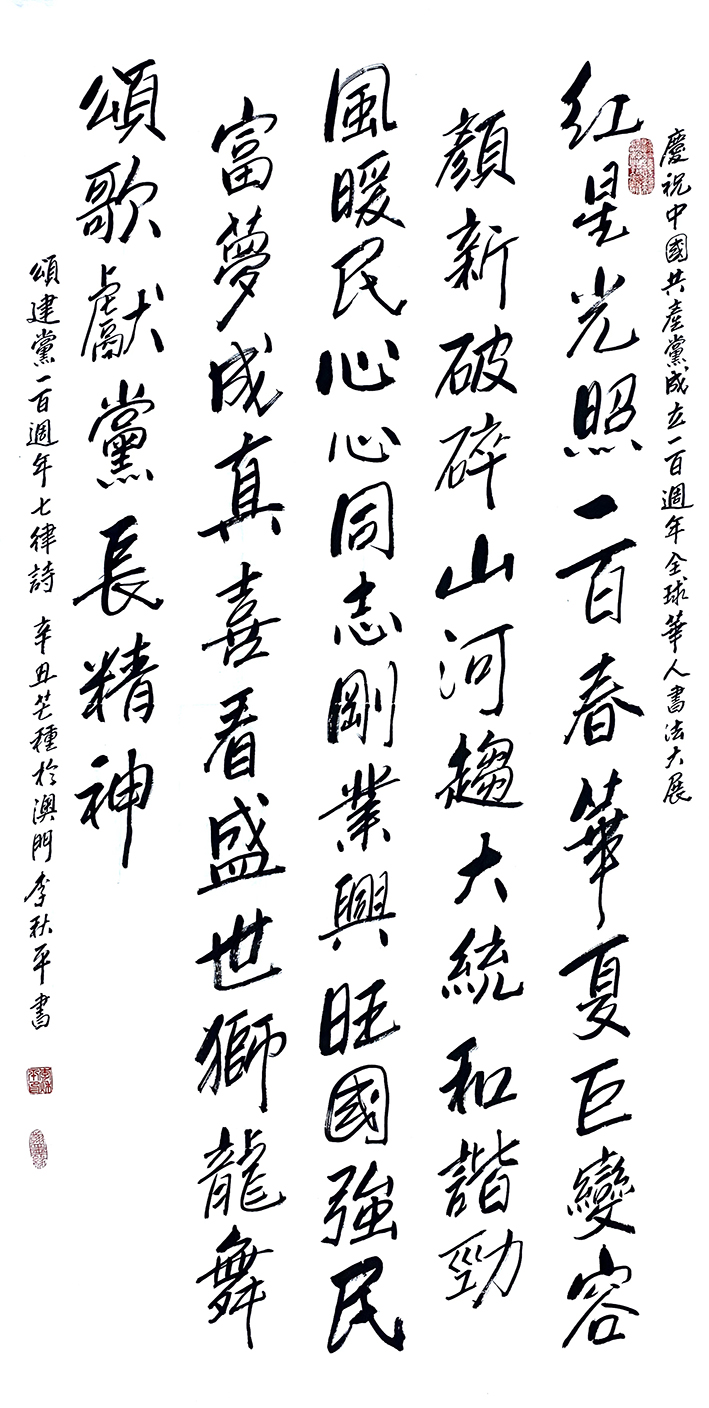 慶祝中國共產黨成立一百週年全球華人書法大展
红星光照一百春華夏巨變容
顏新破碎山河趨大統和諧勁
風暖民心心同志剛業興旺國強民
富夢成真喜看盛世獅龍舞
頌歌獻黨長精神
頌建黨一百週年七律詩 辛丑芒種於澳門 李秋平書